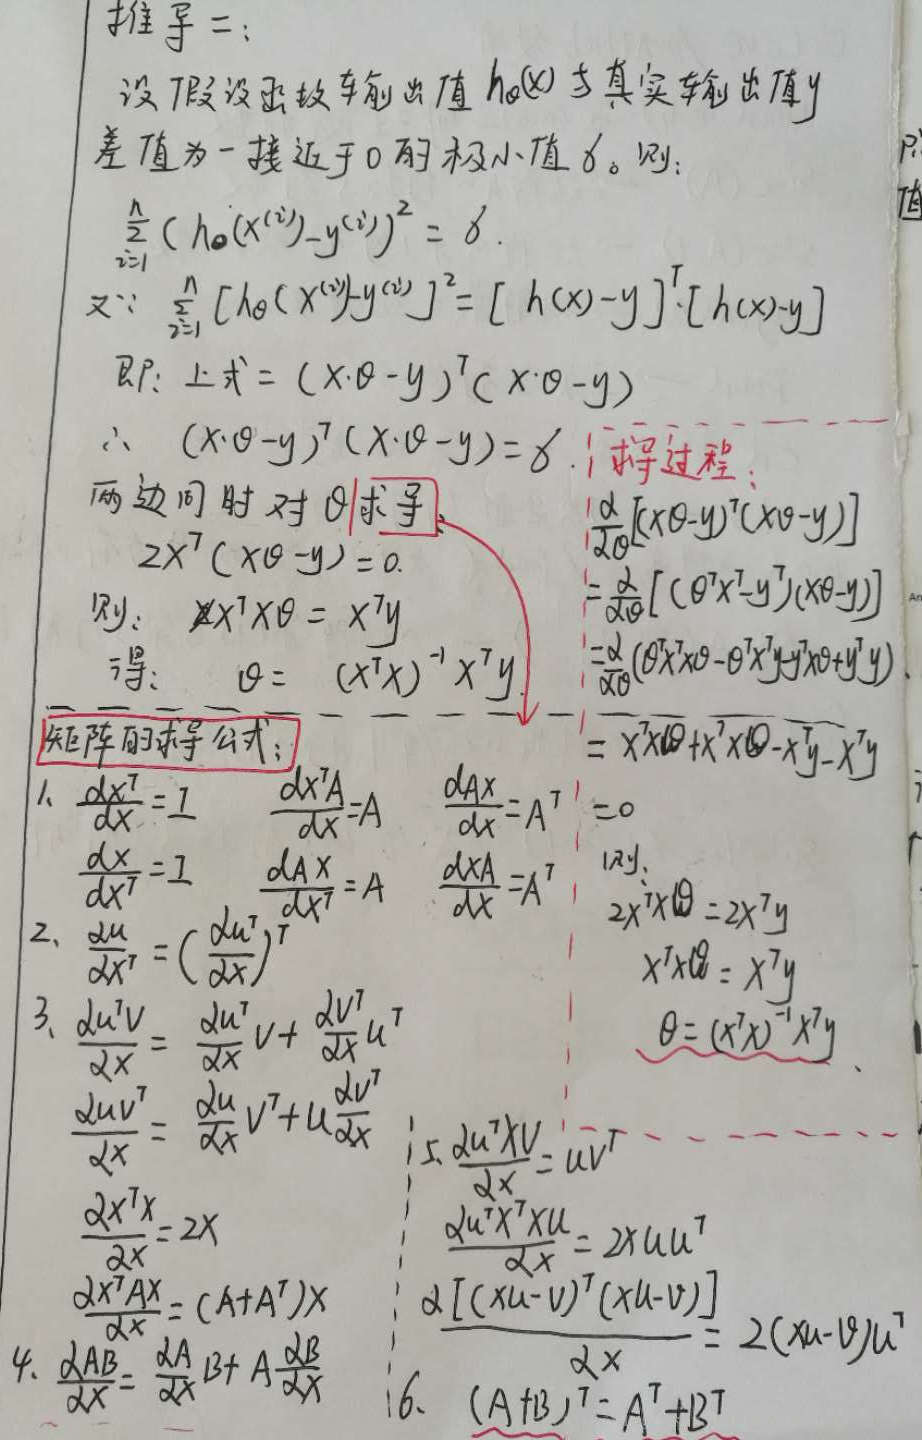 推导二：
设假设函数输出值 hθ(x) 与真实输出值y
差值为一接近于0的极小值 δ。则：
∑ᵢ₌₁ⁿ (hθ(x⁽ⁱ⁾)-y⁽ⁱ⁾)² = δ.
又∵ ∑ᵢ₌₁ⁿ [hθ(x⁽ⁱ⁾)-y⁽ⁱ⁾]² = [h(x)-y]ᵀ·[h(x)-y]
即：上式 = (X·θ-y)ᵀ(X·θ-y)
∴ (X·θ-y)ᵀ(X·θ-y) = δ.
两边同时对θ求导.
2Xᵀ(Xθ-y) = 0.
则： XᵀXθ = Xᵀy
得： θ = (XᵀX)⁻¹Xᵀy.
求导过程：
∂/∂θ[(Xθ-y)ᵀ(Xθ-y)]
= ∂/∂θ[(θᵀXᵀ-yᵀ)(Xθ-y)]
= ∂/∂θ(θᵀXᵀXθ-θᵀXᵀy-yᵀXθ+yᵀy)
= XᵀXθ+XᵀXθ-Xᵀy-Xᵀy
=0
则：
2XᵀXθ = 2Xᵀy
XᵀXθ = Xᵀy
θ = (XᵀX)⁻¹Xᵀy
矩阵的求导公式：
1、 dxᵀ/dx = I dxᵀA/dx = A dAx/dx = Aᵀ
dx/dxᵀ = I dAx/dxᵀ = A dxA/dx = Aᵀ
2、 ∂u/∂xᵀ = (∂uᵀ/∂x)ᵀ
3、 ∂uᵀv/∂x = ∂uᵀ/∂x v + ∂vᵀ/∂x uᵀ
∂uvᵀ/∂x = ∂u/∂x vᵀ + u ∂vᵀ/∂x
∂xᵀx/∂x = 2x
∂xᵀAx/∂x = (A+Aᵀ)x
4、 ∂AB/∂x = ∂A/∂x B + A ∂B/∂x
5、 ∂uᵀXv/∂x = uvᵀ
∂uᵀXᵀXu/∂x = 2Xuuᵀ
∂[(Xu-v)ᵀ(Xu-v)]/∂x = 2(Xu-v)uᵀ
6、 (A+B)ᵀ = Aᵀ+Bᵀ